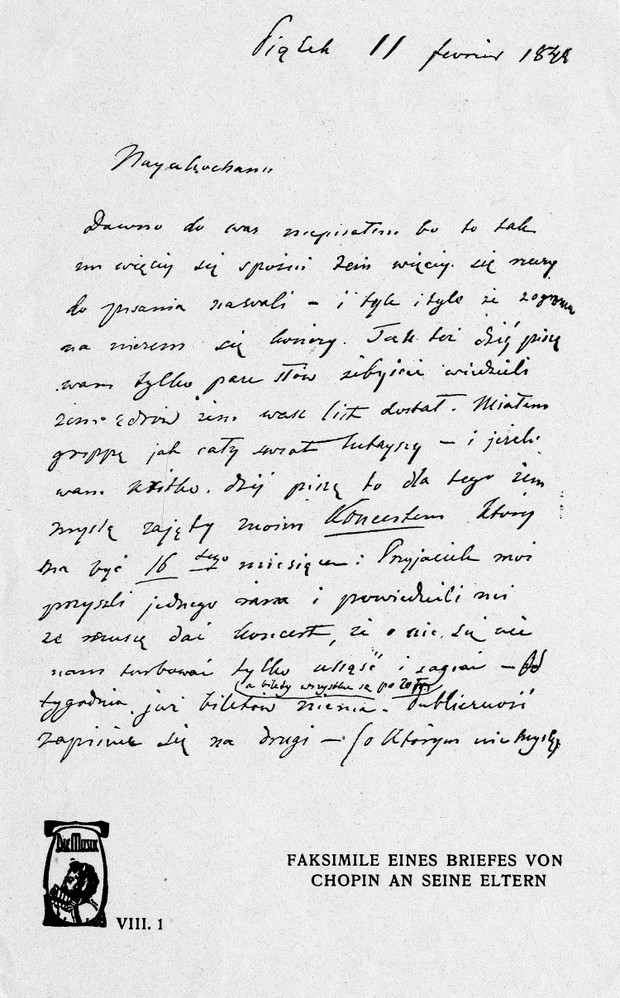 Piątek 11 fevrier 1848
Nayukochansi
Dawno do was niepisałem bo to tak
im więcéj się spóźni tém więcéj się
do pisania nawali – i tyle i tyle że
na niczem się kończy. Tak też dziś piszę
wam tylko pare słów żebyście wiedzieli
żem zdrów żem wasz list dostał. Miałem
grippę jak cały świat tutayszy – i jeżeli
wam krótko dziś piszę to dla tego żem
myślą zajęty moim Koncertem który
ma być 16 tego miesiąca: Przyjaciele moi
przyszli jednego rana i powiedzieli mi
że muszę dać koncert, że o nic się nie
mam turbować tylko usiąść i zagrać – Od
tygodnia już biletów niema. Publiczność
(a bilety wszystkie są po 20 fr)
zapisuje się na drugi – (o którym nie myślę
Die Musik
VIII. 1
FAKSIMILE EINES BRIEFES VON
CHOPIN AN SEINE ELTERN